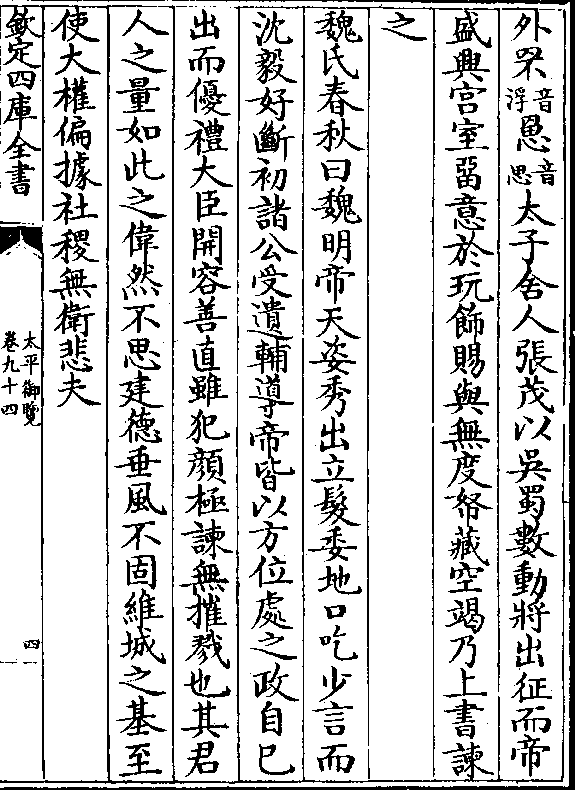 外罘音浮罳音思太子舍人張茂以吳蜀數動將出征而帝
盛興宫室留意於玩飾賜與無度帑藏空竭乃上書諫
之
魏氏春秋曰魏明帝天姿秀出立髮委地口吃少言而
沈毅好斷初諸公受遺輔導帝皆以方位處之政自已
出而優禮大臣開容善直雖犯顔極諫無摧戮也其君
人之量如此之偉然不思建德垂風不固維城之基至
使大權偏據社稷無衛悲夫
欽定四庫全書
太平御覽
卷九十四
四